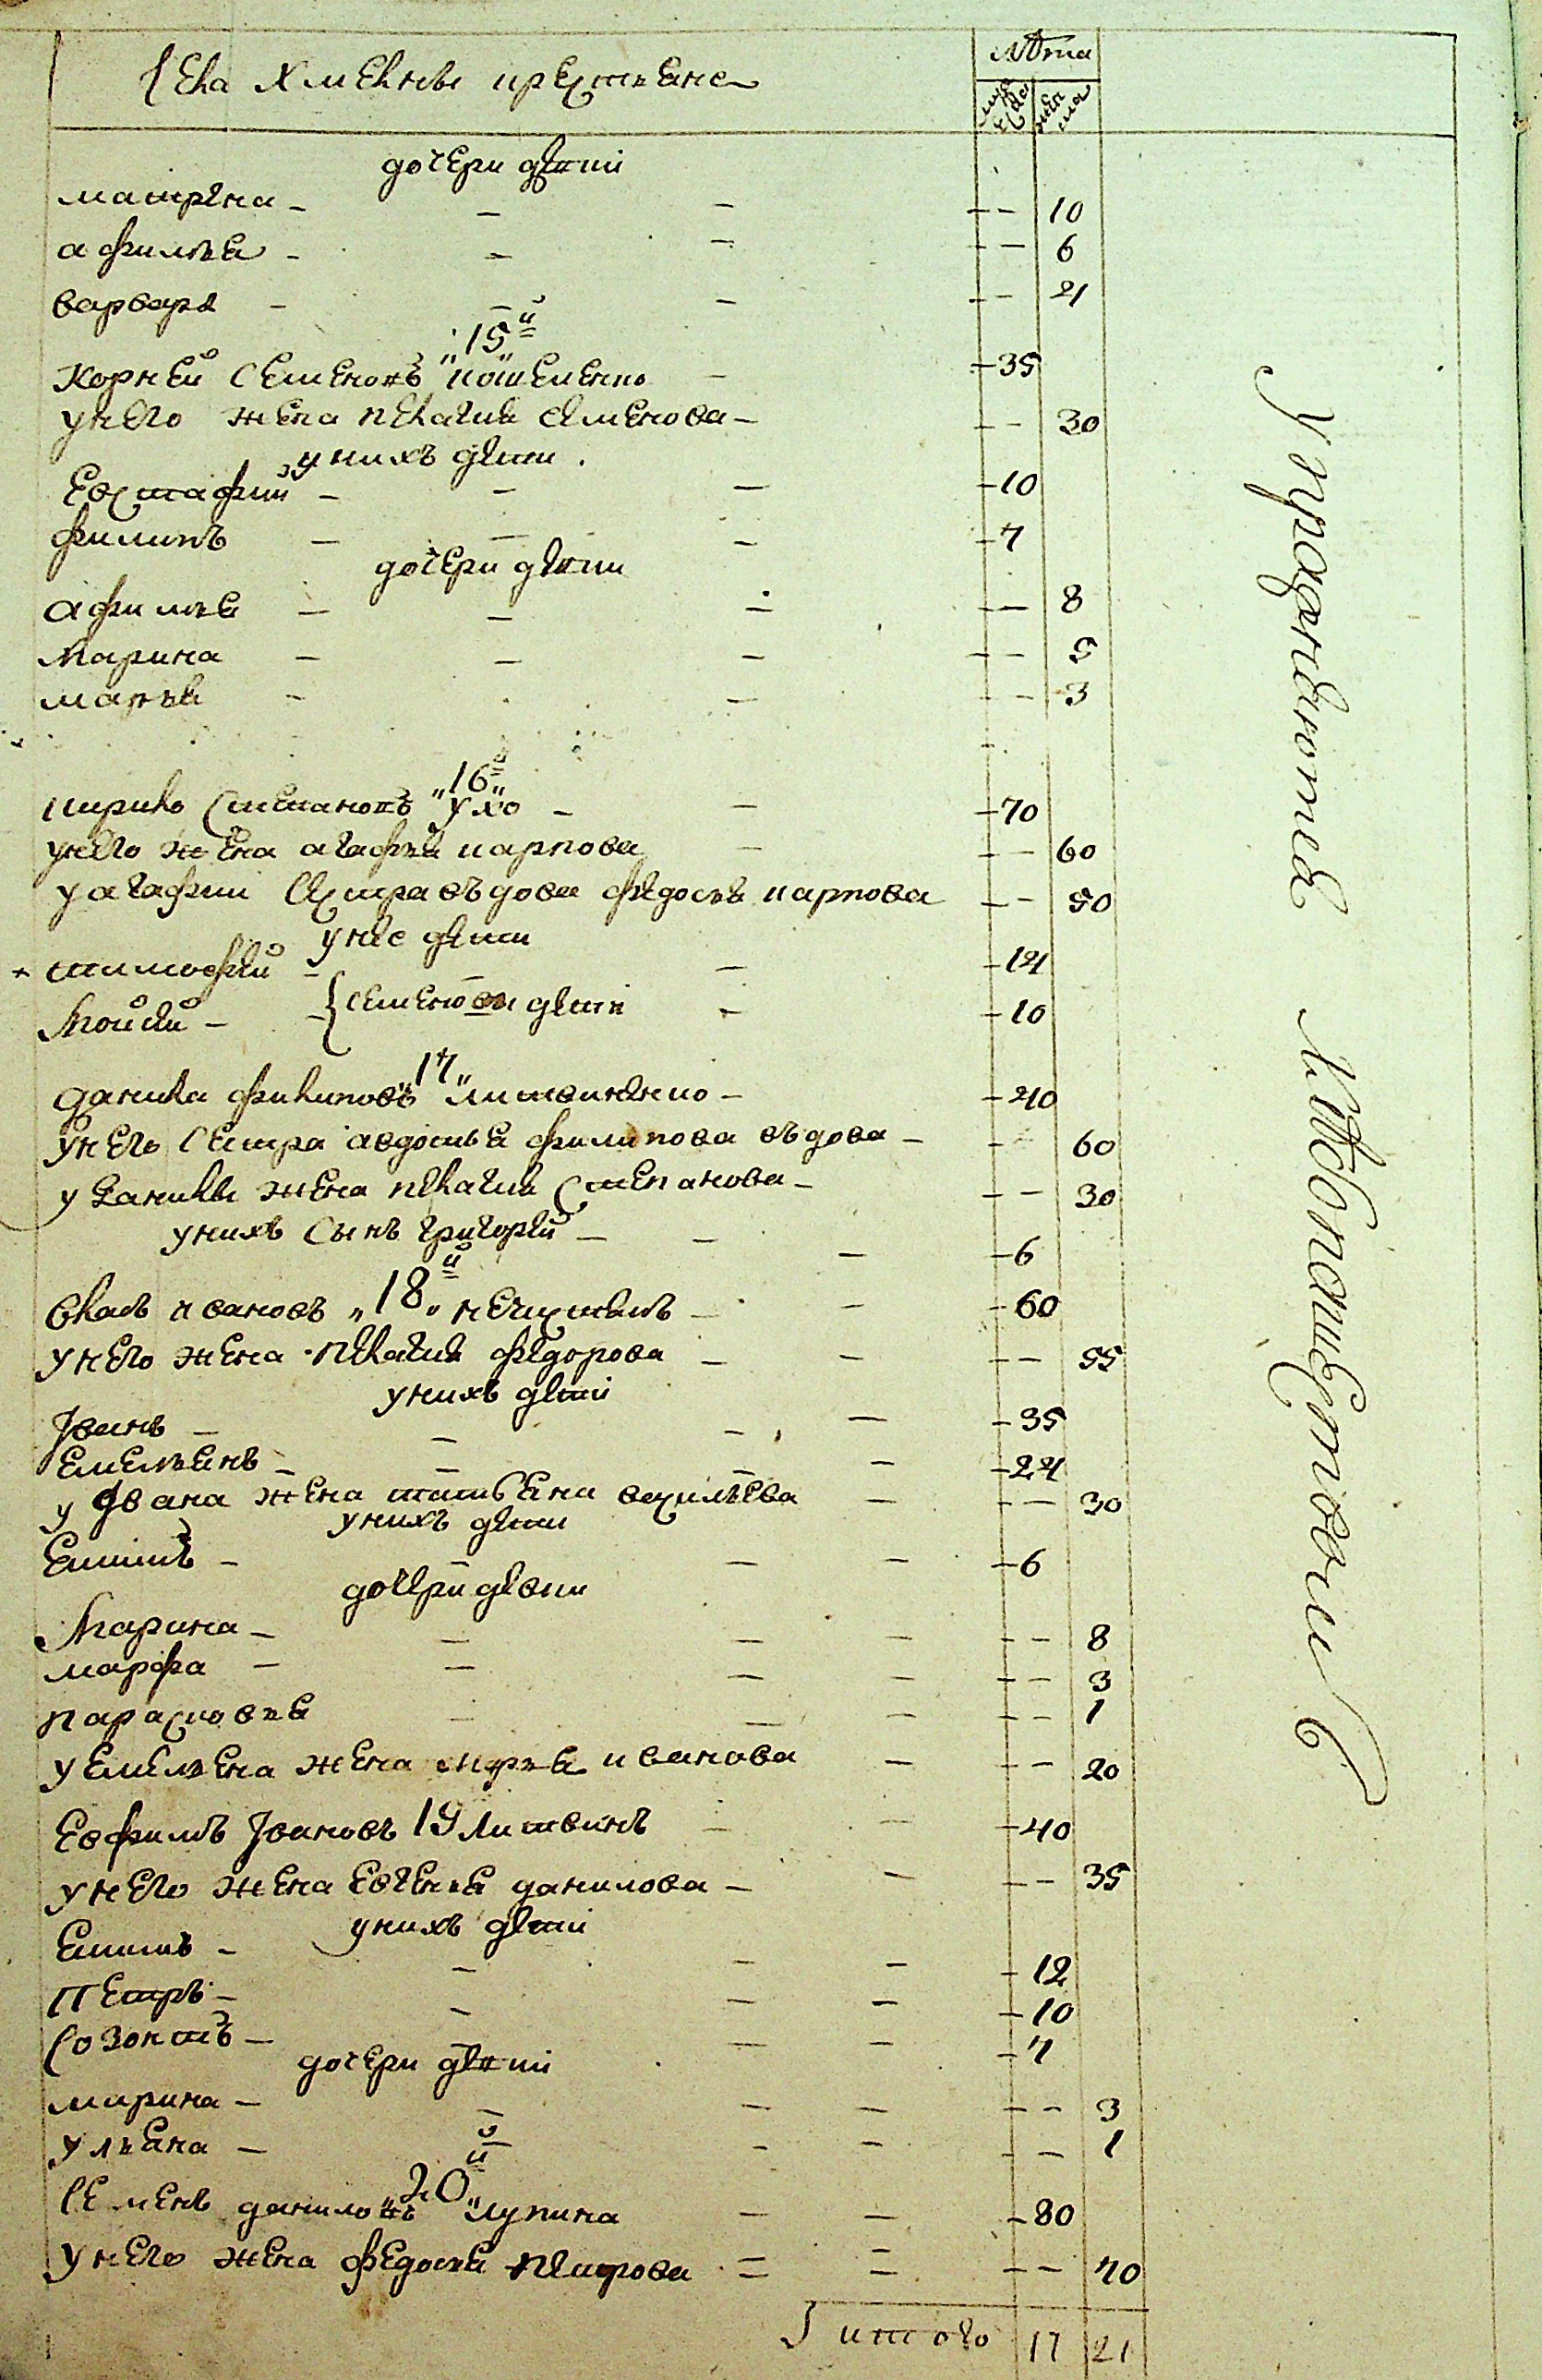 Села Хмелквы крестьяне
лѣта
мужеска женска
дочери дѣти
матрена - - - - - 10
афимья - - - - - 6
варвара - - - - - 21
15й
Корней Семеновъ - 35
у него жена пелагия семенова - - - 30
у нихъ дѣти
Евстафий - - - 10
филипъ - - - 7
дочери дѣти
афимья - - - - - 8
Марина - - - - - 5
марья - - - - 3
16й
кирило Степановъ ухо - - - 70
у него жена агафья карпова - - - 60
у агафии сестра въдова федосья карпова - - 50
у нее дѣти
тимофѣй - - - 14
Мойсѣй - { семеновы дѣти - - 10
17
данила филиповъ литвиненко - - 40
у него сестра авдотья филипова въдова - - 60
у Данилы жена пелагия Степанова - - - 30
у нихъ Сынъ григорѣй - - - - 6
18й
власъ ивановъ - - - 60
у него жена пелагия федорова - - - - 55
у нихъ дѣти
Іванъ - - - - - 35
Емельянъ - - - - - 24
у Ивана жена татьяна василъева - - - 30
у нихъ дѣти
- - - - 6
дочери дѣвки
Марина - - - - - - 8
марфа - - - - - - 3
парасковья - - - - - 1
у Емельяна жена марья иванова - - - 20
Евфимъ Івановъ 19 Литвинъ - - - 40
у него жена Евгения данилова - - - - 35
у нихъ дѣти
- - - - - 12
Петръ - - - - - 10
Созонтъ - - - - - 7
дочери дѣти
марина - - - - - - 3
ульяна - - - - - - 1
20й
Семенъ даниловъ лупина - - - 80
у него жена федосья петрова - - - - 70
Итого 17 21